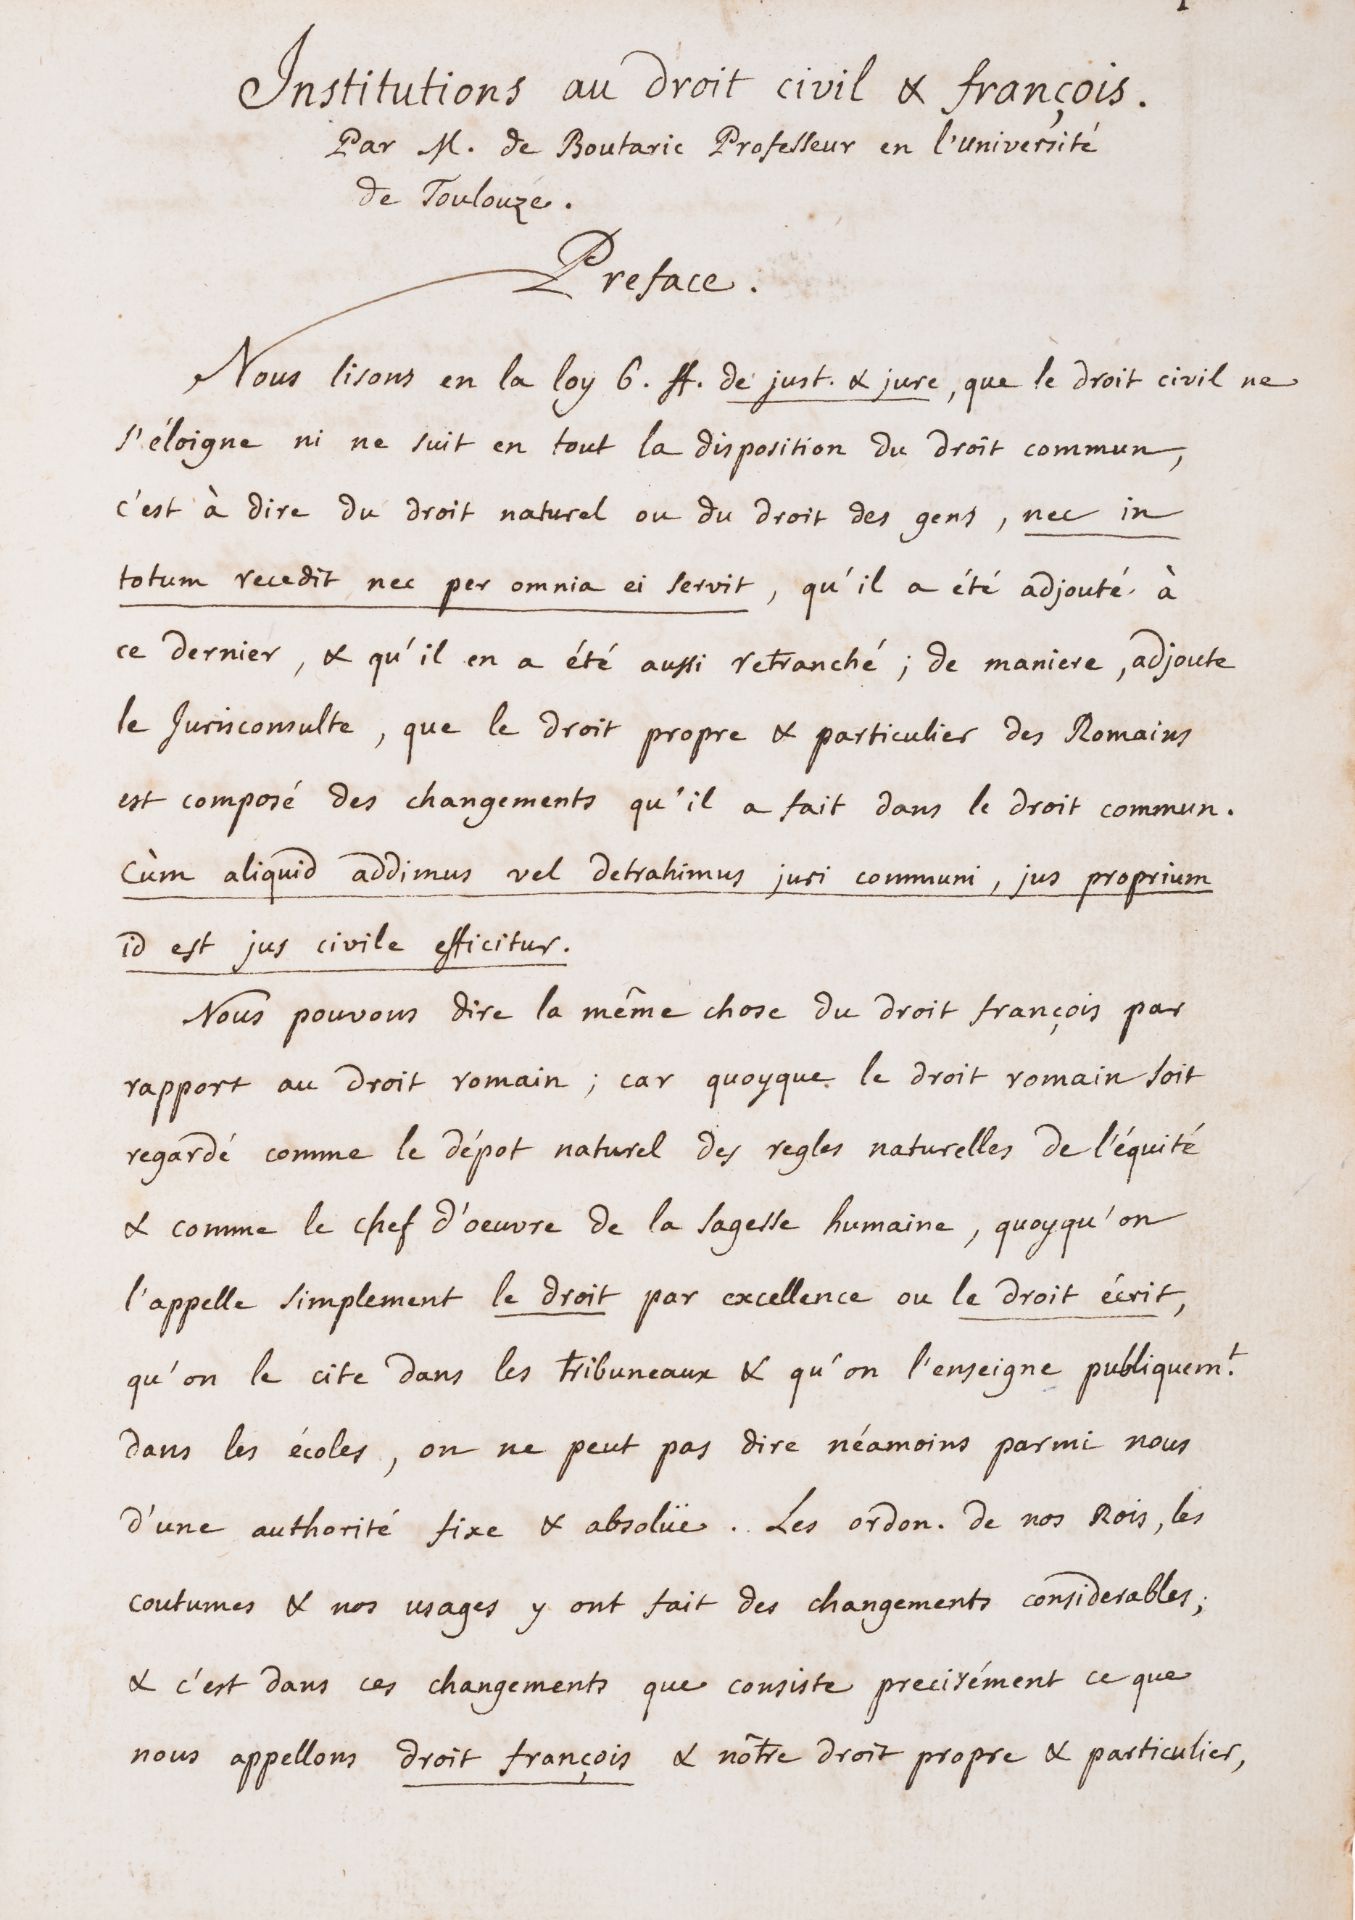 Institutions au droit civil & françois.
Par M. de Boutaric Professeur en l'université
de Toulouze.
Preface.
Nous lisons en la loy 6. ff. de just. & jure, que le droit civil ne
s'éloigne ni ne suit en tout la disposition du droit commun,
c'est à dire du droit naturel ou du droit des gens, nec in
totum recedit nec per omnia ei servit, qu'il a été adjouté à
ce dernier, & qu'il en a été aussi retranché; de maniere, adjoute
le Jurisconsulte, que le droit propre & particulier des Romains
est composé des changements qu'il a fait dans le droit commun.
Cùm aliquid addimus vel detrahimus juri communi, jus proprium
id est jus civile efficitur.
Nous pouvons dire la même chose du droit françois par
rapport au droit romain; car quoyque le droit romain soit
regardé comme le dépot naturel des regles naturelles de l'équité
& comme le chef d'oeuvre de la sagesse humaine, quoyqu'on
l'appelle simplement le droit par excellence ou le droit écrit,
qu'on le cite dans les tribuneaux & qu'on l'enseigne publiquemt.
dans les écoles, on ne peut pas dire néamoins parmi nous
d'une authorité fixe & absolüe. Les ordon. de nos Rois, les
coutumes & nos usages y ont fait des changements considerables;
& c'est dans ces changements que consiste precisément ce que
nous appellons droit françois & nôtre droit propre & particulier,